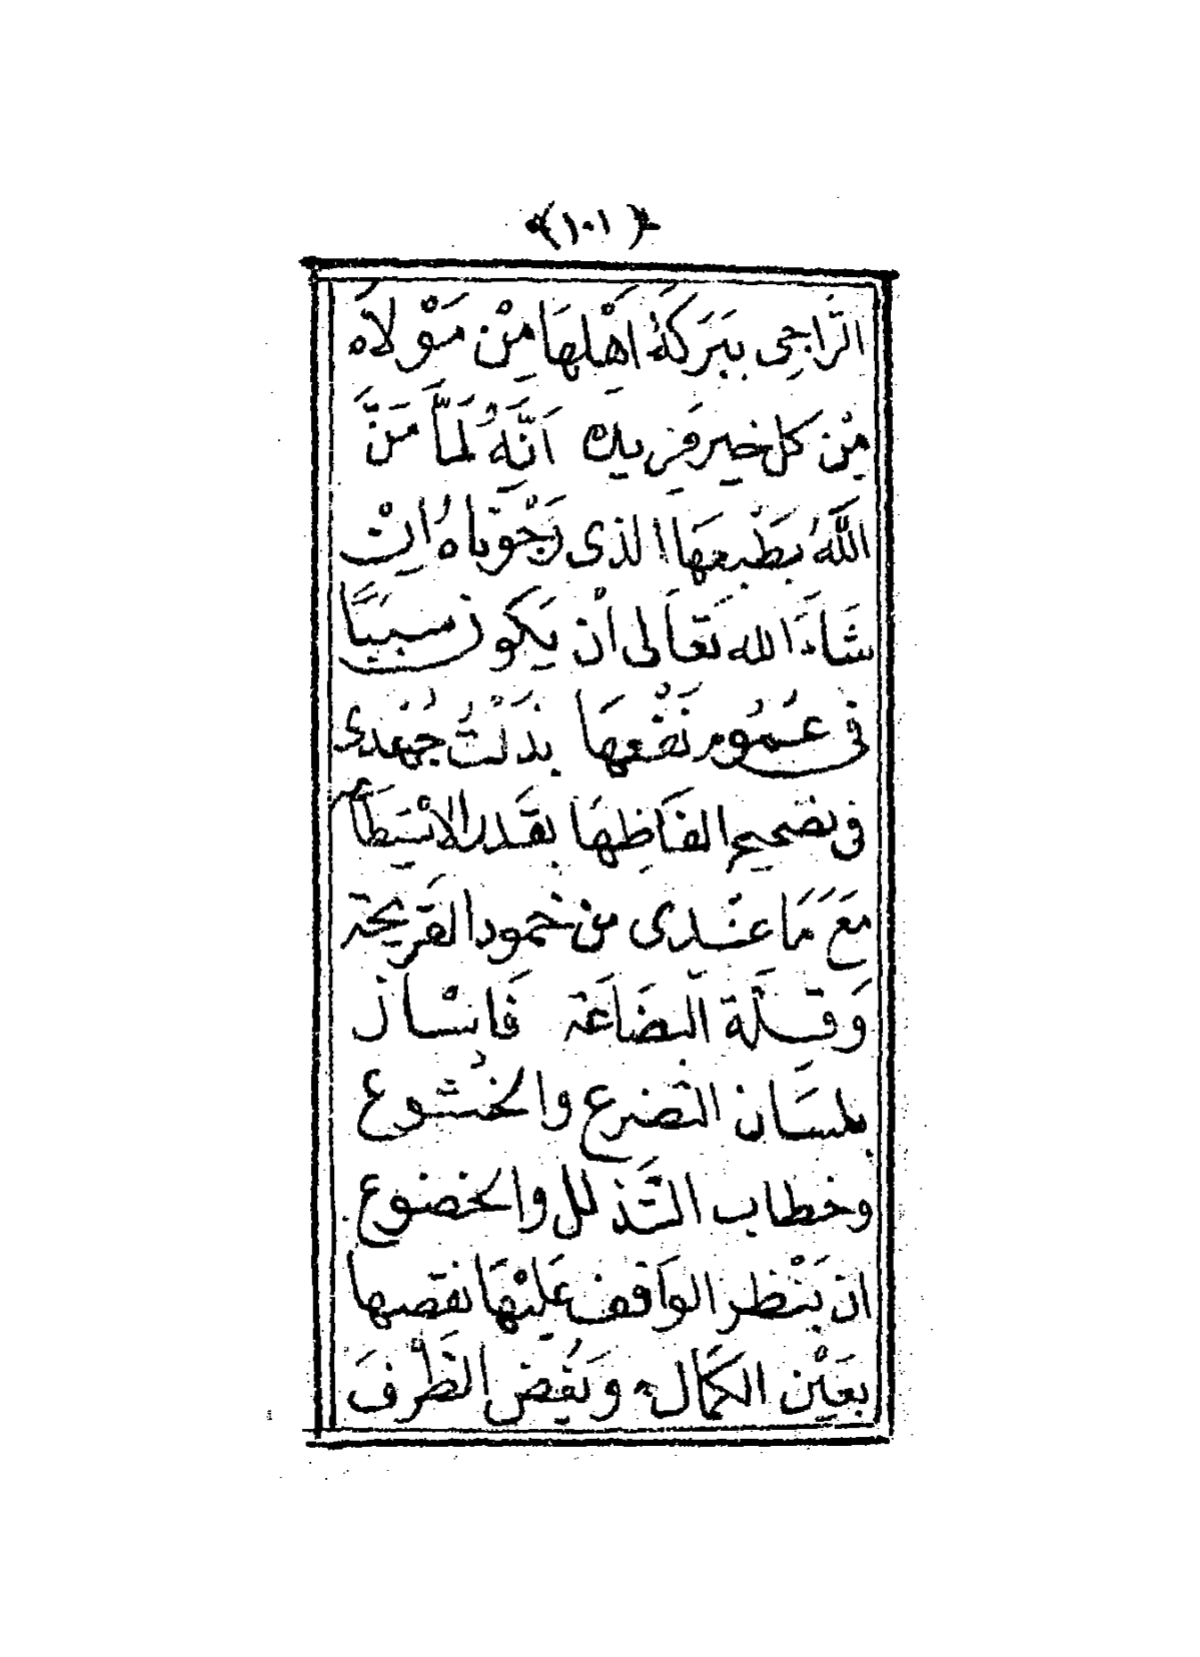 ﴿١٠١﴾
الرَّاجِى بِبَرَكَةِ اَهْلِهَا مِنْ مَوْلَاهُ
مِنْ كل خير مَزِيدَه اَنَّهُ لَمَّا مَنَّ
اللّٰهُ بِطَبْعِهَا الذى رَجَوْنَاهُ اِنْ
شَاءَ الله تَعَالى اَنْ يَكُونَ سَبَبًا
فى عُمُومِ نَفْعِهَا بَذَلْتُ جُهْدِى
فى تصحيح الفَاظِهَا بقَدر الاسْتِطَاعة
مَعَ مَا عنْدى من خمود القَريحة
وَقِلَّة البضَاعَة فَاسْأل
بلسَان التضرع والخشُوع
وخطاب التَّذلل والخضوع
ان يَنْظر الوَاقف عَلَيْهَا نقصها
بعَيْن الكمَال وَيَغُض الطَّرْفَ